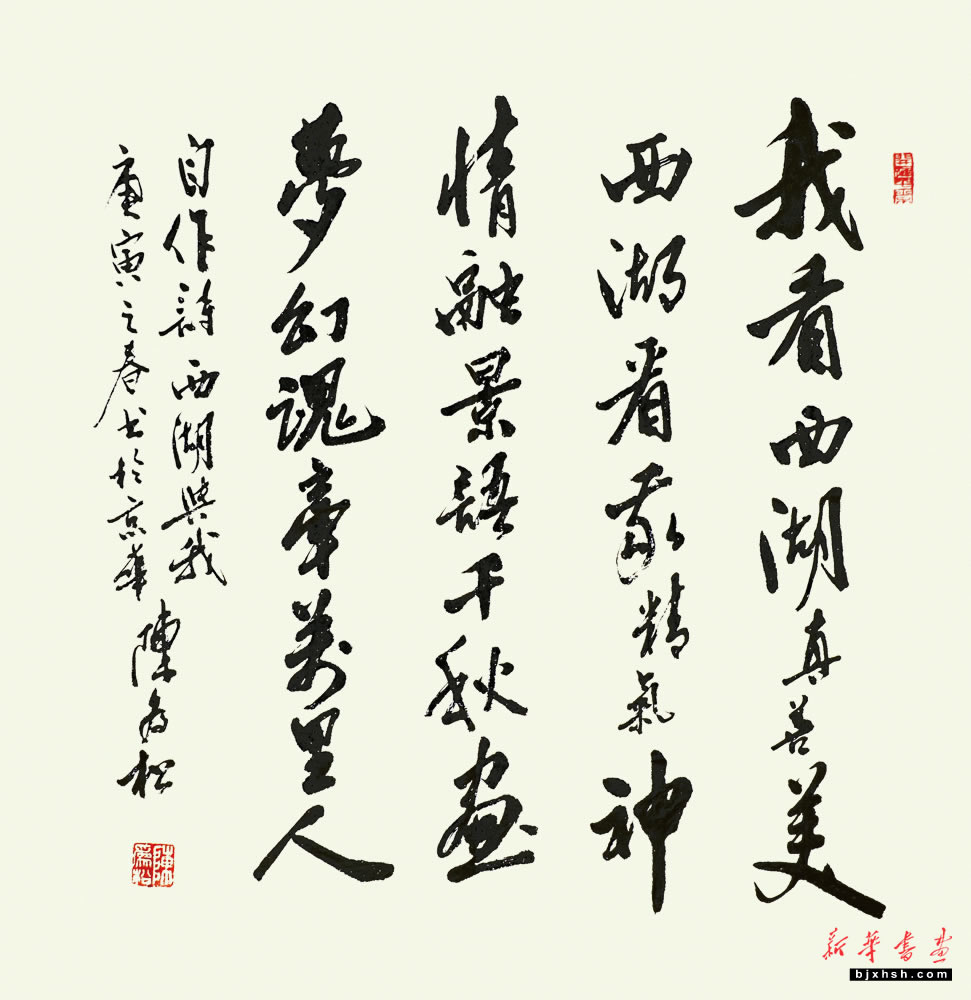 我看西湖真善美
西湖看我精氣神
情融景語千秋畫
夢幻魂牽萬里人
自作詩西湖與我
庚寅之春书於京華
陳為松
陳為松
新華書畫
bjxhsh.com